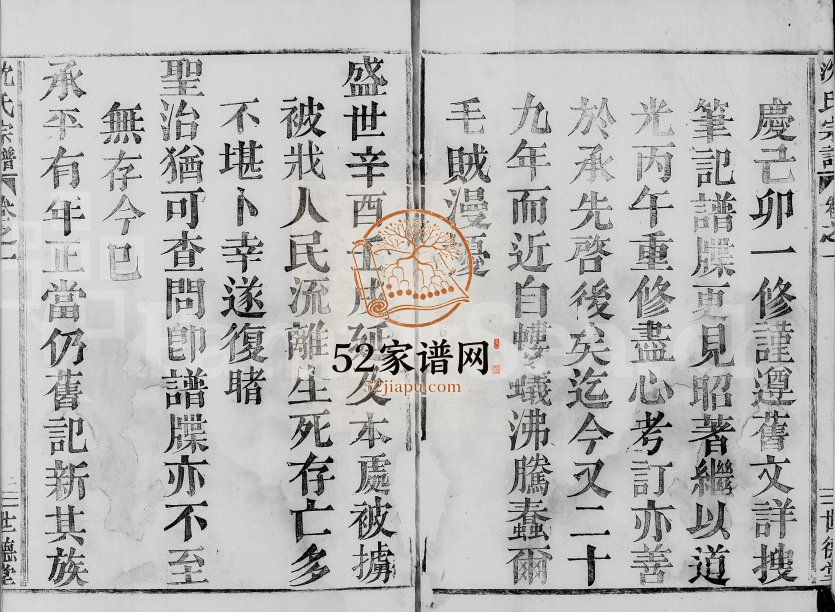 慶己卯一修謹遵舊文詳搜
筆記譜牒更見昭著繼以道
光丙午重修盡心考訂亦善
於承先啓後矣迄今又二十
九年而近自螻蟻沸騰蠢爾
毛賊漫擾
盛世辛酉壬戌延及本處被擄
被戕人民流離生死存亡多
不堪卜幸遂復睹
聖治猶可查問卽譜牒亦不至
無存今巳
承平有年正當仍舊記新其族
沈氏宗譜
卷之一
三世德堂
52家谱网
52jiapu.com